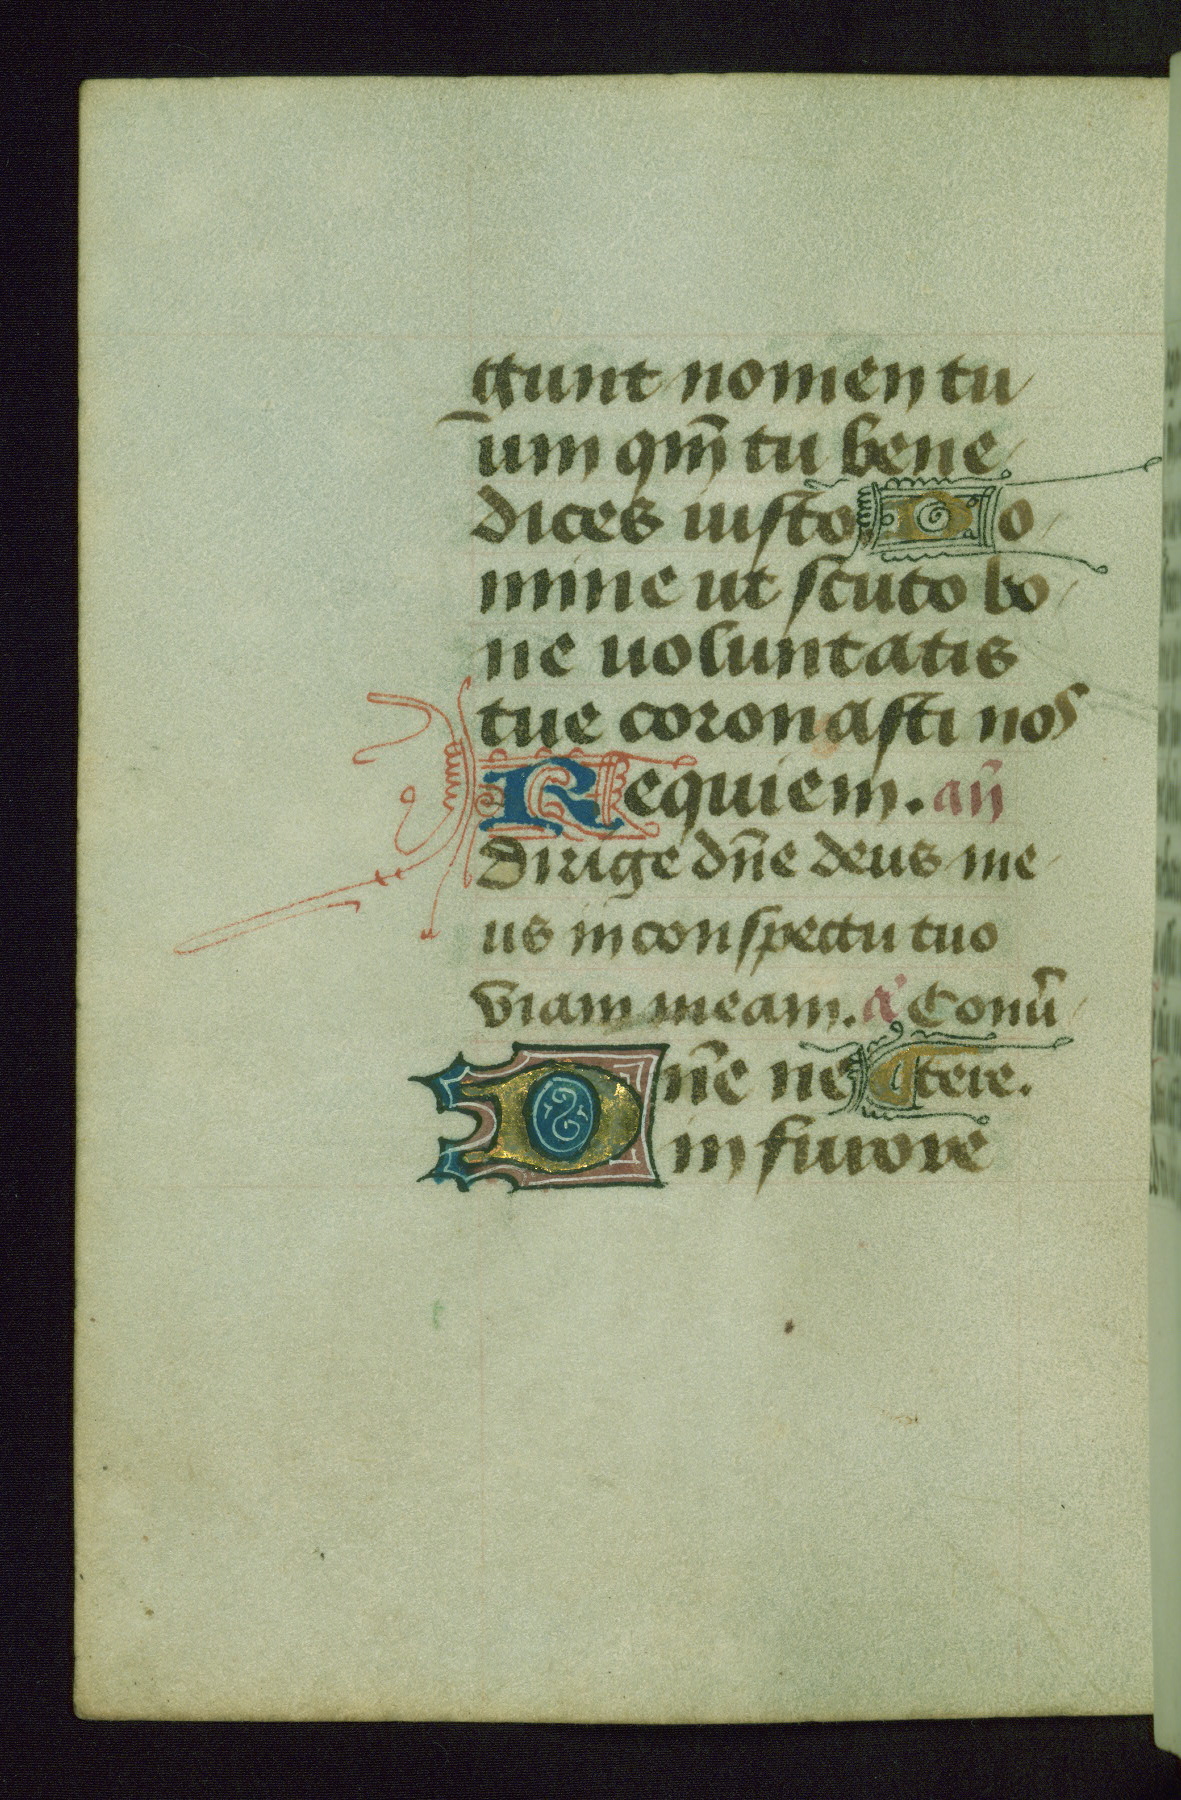 gunt nomen tu
um qm̄ tu bene
dices iusto Do
mine ut scuto bo
ne uoluntatis
tue coronasti nos
Requiem. an̄
Dirige dn̄e deus me
us in conspectu tuo
viam meam. a Conū
Dn̄e ne Ctere.
in furore